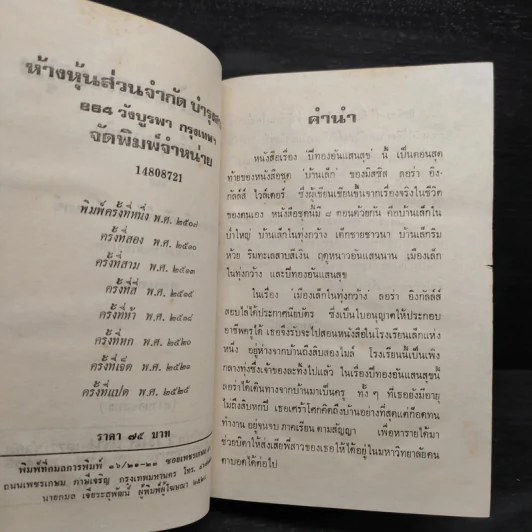 ห้างหุ้นส่วนจำกัด
๒๒๔ วังบูรพา กรุงเทพฯ
จัดพิมพ์จำหน่าย
14808721
พิมพ์ครั้งที่หนึ่ง พ.ศ. ๒๕๐๗
ครั้งที่สอง พ.ศ. ๒๕๑๐
ครั้งที่สาม พ.ศ. ๒๕๑๓
ครั้งที่สี่ พ.ศ. ๒๕๑๕
ครั้งที่ห้า พ.ศ. ๒๕๑๘
ครั้งที่หก พ.ศ. ๒๕๒๐
ครั้งที่เจ็ด พ.ศ. ๒๕๒๑
ครั้งที่แปด พ.ศ. ๒๕๒๕
ราคา ๗๕ บาท
พิมพ์ที่กมลการพิมพ์ ๑๖/๒๑-๒๓ ซอยเพชรเกษม
ถนนเพชรเกษม ภาษีเจริญ กรุงเทพมหานคร โทร.
นายกมล เจียระสุพัฒน์ ผู้พิมพ์ผู้โฆษณา ๒๕๒๕
คำนำ
หนังสือเรื่อง 'ปีทองอันแสนสุข' นี้ เป็นตอนสุด
ท้ายของหนังสือชุด 'บ้านเล็ก' ของมิสซิส ลอรา อิง-
กัลล์ส์ ไวล์เดอร์ ซึ่งผู้เขียนเขียนขึ้นจากเรื่องจริงในชีวิต
ของตนเอง หนังสือชุดนี้มี ๘ ตอนด้วยกัน คือบ้านเล็กใน
ป่าใหญ่ บ้านเล็กในทุ่งกว้าง เด็กชายชาวนา บ้านเล็กริม
ห้วย ริมทะเลสาบสีเงิน ฤดูหนาวอันแสนนาน เมืองเล็ก
ในทุ่งกว้าง และปีทองอันแสนสุข
ในเรื่อง 'เมืองเล็กในทุ่งกว้าง' ลอร่า อิงกัลล์ส์
สอบได้ได้ประกาศนียบัตร ซึ่งเป็นใบอนุญาตให้ประกอบ
อาชีพครูได้ เธอจึงรับจะไปสอนหนังสือในโรงเรียนเล็กแห่ง
หนึ่ง อยู่ห่างจากบ้านถึงสิบสองไมล์ โรงเรียนนี้เป็นเพิง
กลางทุ่งซึ่งเจ้าของละทิ้งไปแล้ว ในเรื่องปีทองอันแสนสุขนี้
ลอร่าได้เดินทางจากบ้านมาเป็นครู ทั้ง ๆ ที่เธอยังมีอายุ
ไม่ถึงสิบหกปี เธอเศร้าโศกคิดถึงบ้านอย่างที่สุดแต่ก็อดทน
ทำงาน อยู่จนจบ ภาคเรียน ตามสัญญา เพื่อหารายได้มา
ช่วยบิดาให้ส่งเสียพี่สาวของเธอให้ได้อยู่ในมหาวิทยาลัยคน
ตาบอดได้ต่อไป